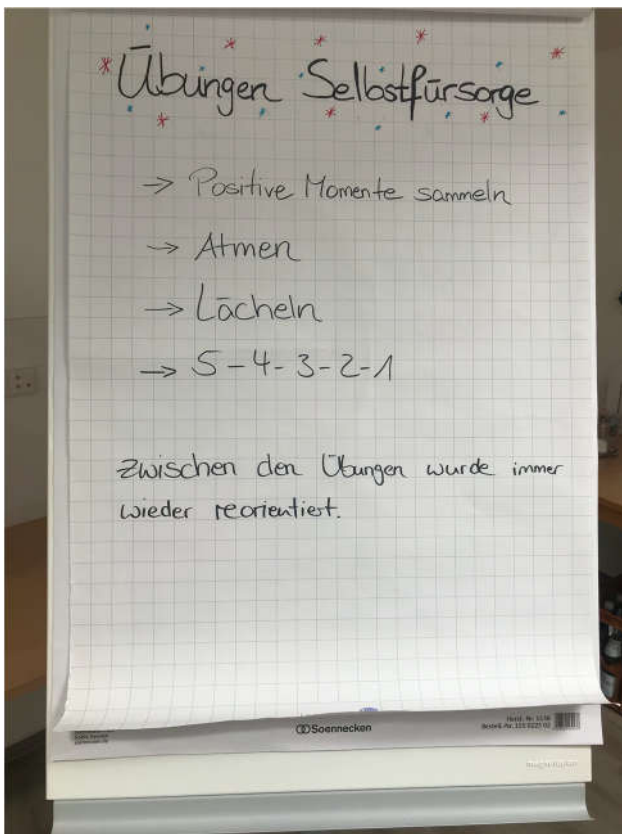 Übungen Selbstfürsorge
→ Positive Momente sammeln
→ Atmen
→ Lächeln
→ 5-4-3-2-1
Zwischen den Übungen wurde immer
wieder reorientiert.
Soennecken